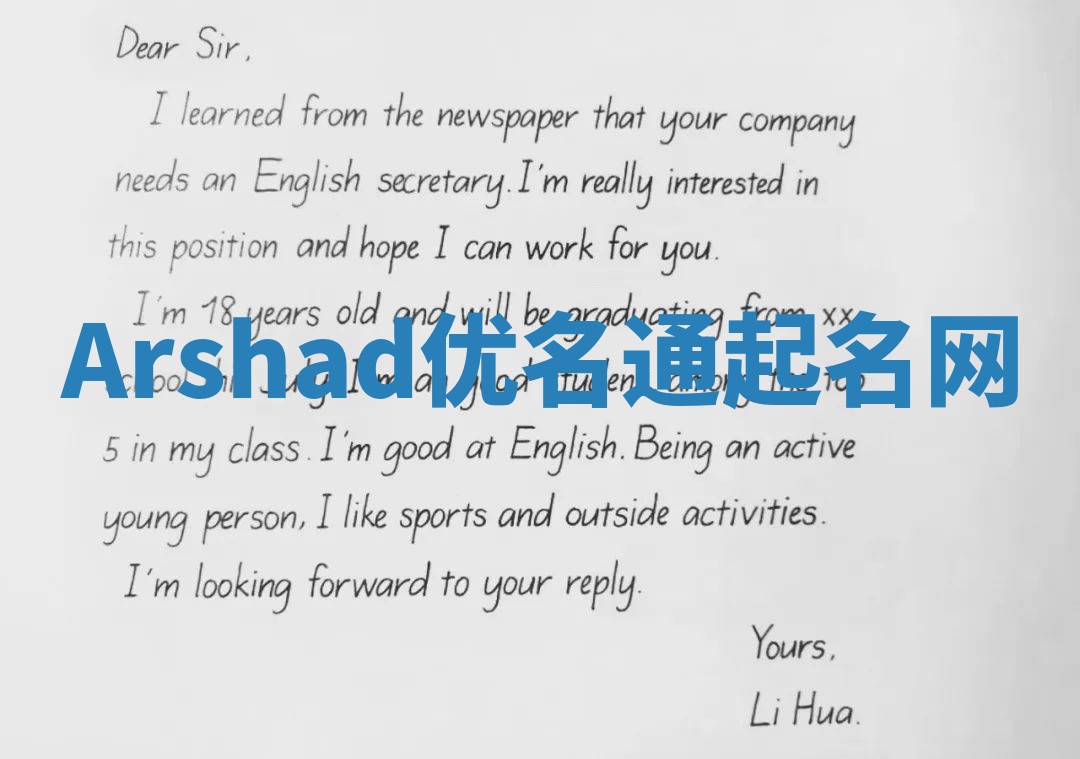 Dear Sir,
I learned from the newspaper that your company
needs an English secretary. I'm really interested in
this position and hope I can work for you.
I'm 18 years old and will be graduating from xx
Arshad优名通起名网
school July. I'm a good student among the top
5 in my class. I'm good at English. Being an active
young person, I like sports and outside activities.
I'm looking forward to your reply.
Yours,
Li Hua.